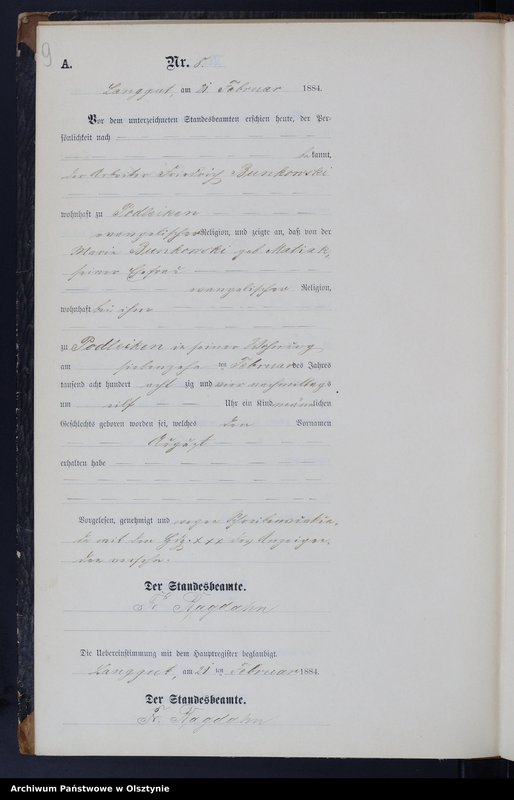 9
A.
Nr. 8.
Langgut, am 21 Februar 1884.
Vor dem unterzeichneten Standesbeamten erschien heute, der Per-
sönlichkeit nach
be kannt,
der Arbeiter Friedrich Bunkowski
wohnhaft zu Podleiken
evangelischer Religion, und zeigte an, daß von der
Marie Bunkowski geb Matiak,
seiner Ehefrau
evangelischer Religion,
wohnhaft bei ihm
zu Podleiken in seiner Wohnung
am siebenzehn ten Februar des Jahres
tausend acht hundert acht zig und vier nachmittags
um elf Uhr ein Kind männlichen
Geschlechts geboren worden sei, welches den Vornamen
August
erhalten habe
Vorgelesen, genehmigt und wegen
mit den xxx des Anzeigen-
den versehn.
Der Standesbeamte.
Fr. Kagdahn
Die Uebereinstimmung mit dem Hauptregister beglaubigt.
Langgut, am 21 ten Februar 1884.
Der Standesbeamte.
Fr. Kagdahn
Archiwum Państwowe w Olsztynie